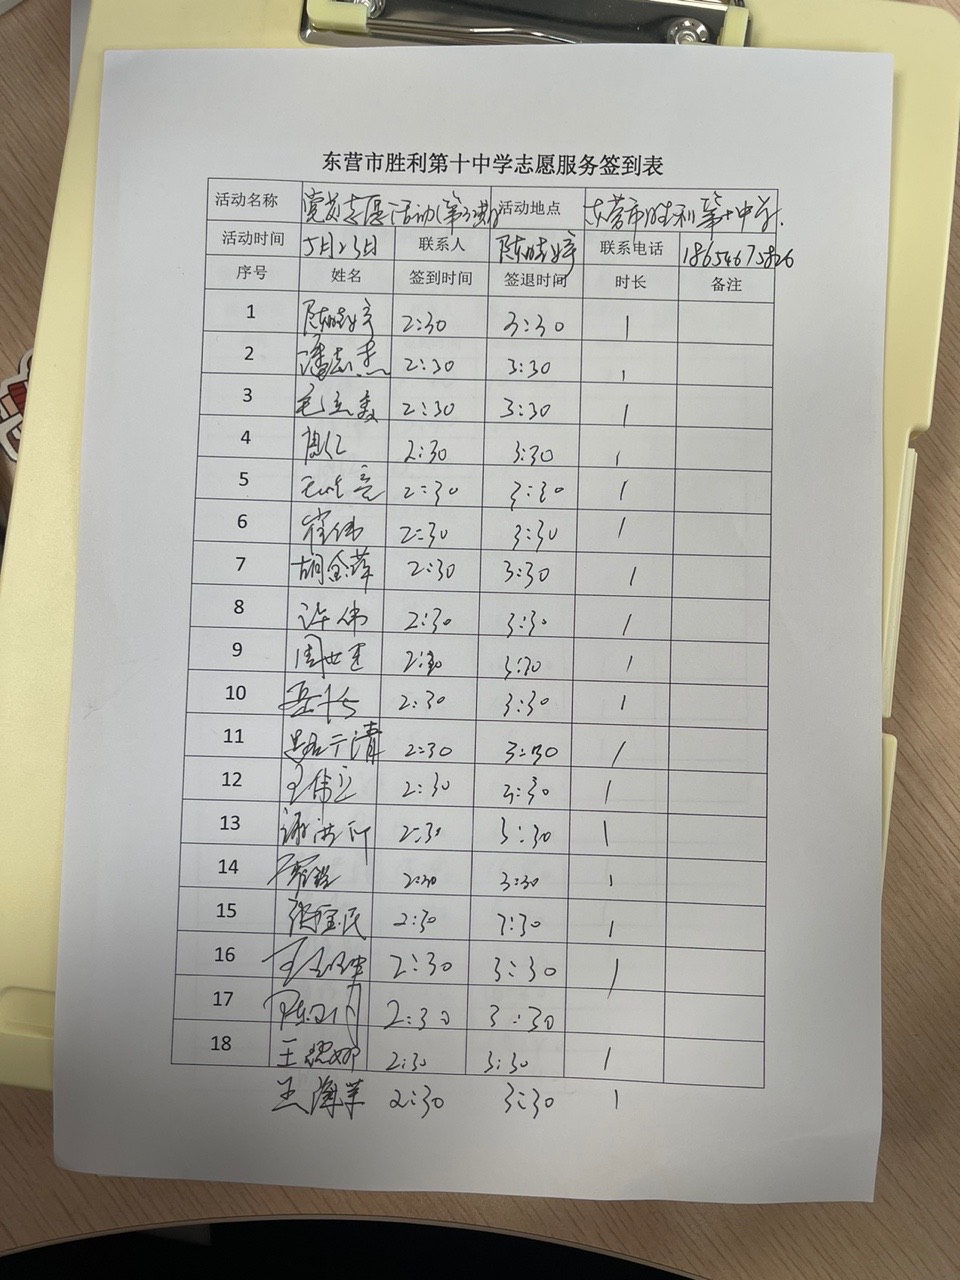 东营市胜利第十中学志愿服务签到表
活动名称 党员志愿活动(第3期) 活动地点 东营市胜利第十中学.
活动时间 5月23日 联系人 陈晓婷 联系电话 18654675826
序号 姓名 签到时间 签退时间 时长 备注
1 陈晓婷 2:30 3:30 1
2 潘志杰 2:30 3:30 1
3 2:30 3:30 1
4 2:30 3:30 1
5 2:30 3:30 1
6 崔伟 2:30 3:30 1
7 胡金萍 2:30 3:30 1
8 许伟 2:30 3:30 1
9 2:30 3:30 1
10 2:30 3:30 1
11 2:30 3:30 1
12 王伟立 2:30 3:30 1
13 2:30 3:30 1
14 2:30 3:30 1
15 张宝民 2:30 3:30 1
16 2:30 3:30 1
17 2:30 3:30
18 2:30 3:30 1
王海萍 2:30 3:30 1